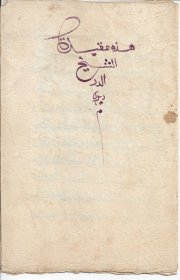 هذه عقيدة
الشيخ
الدر
دير
م